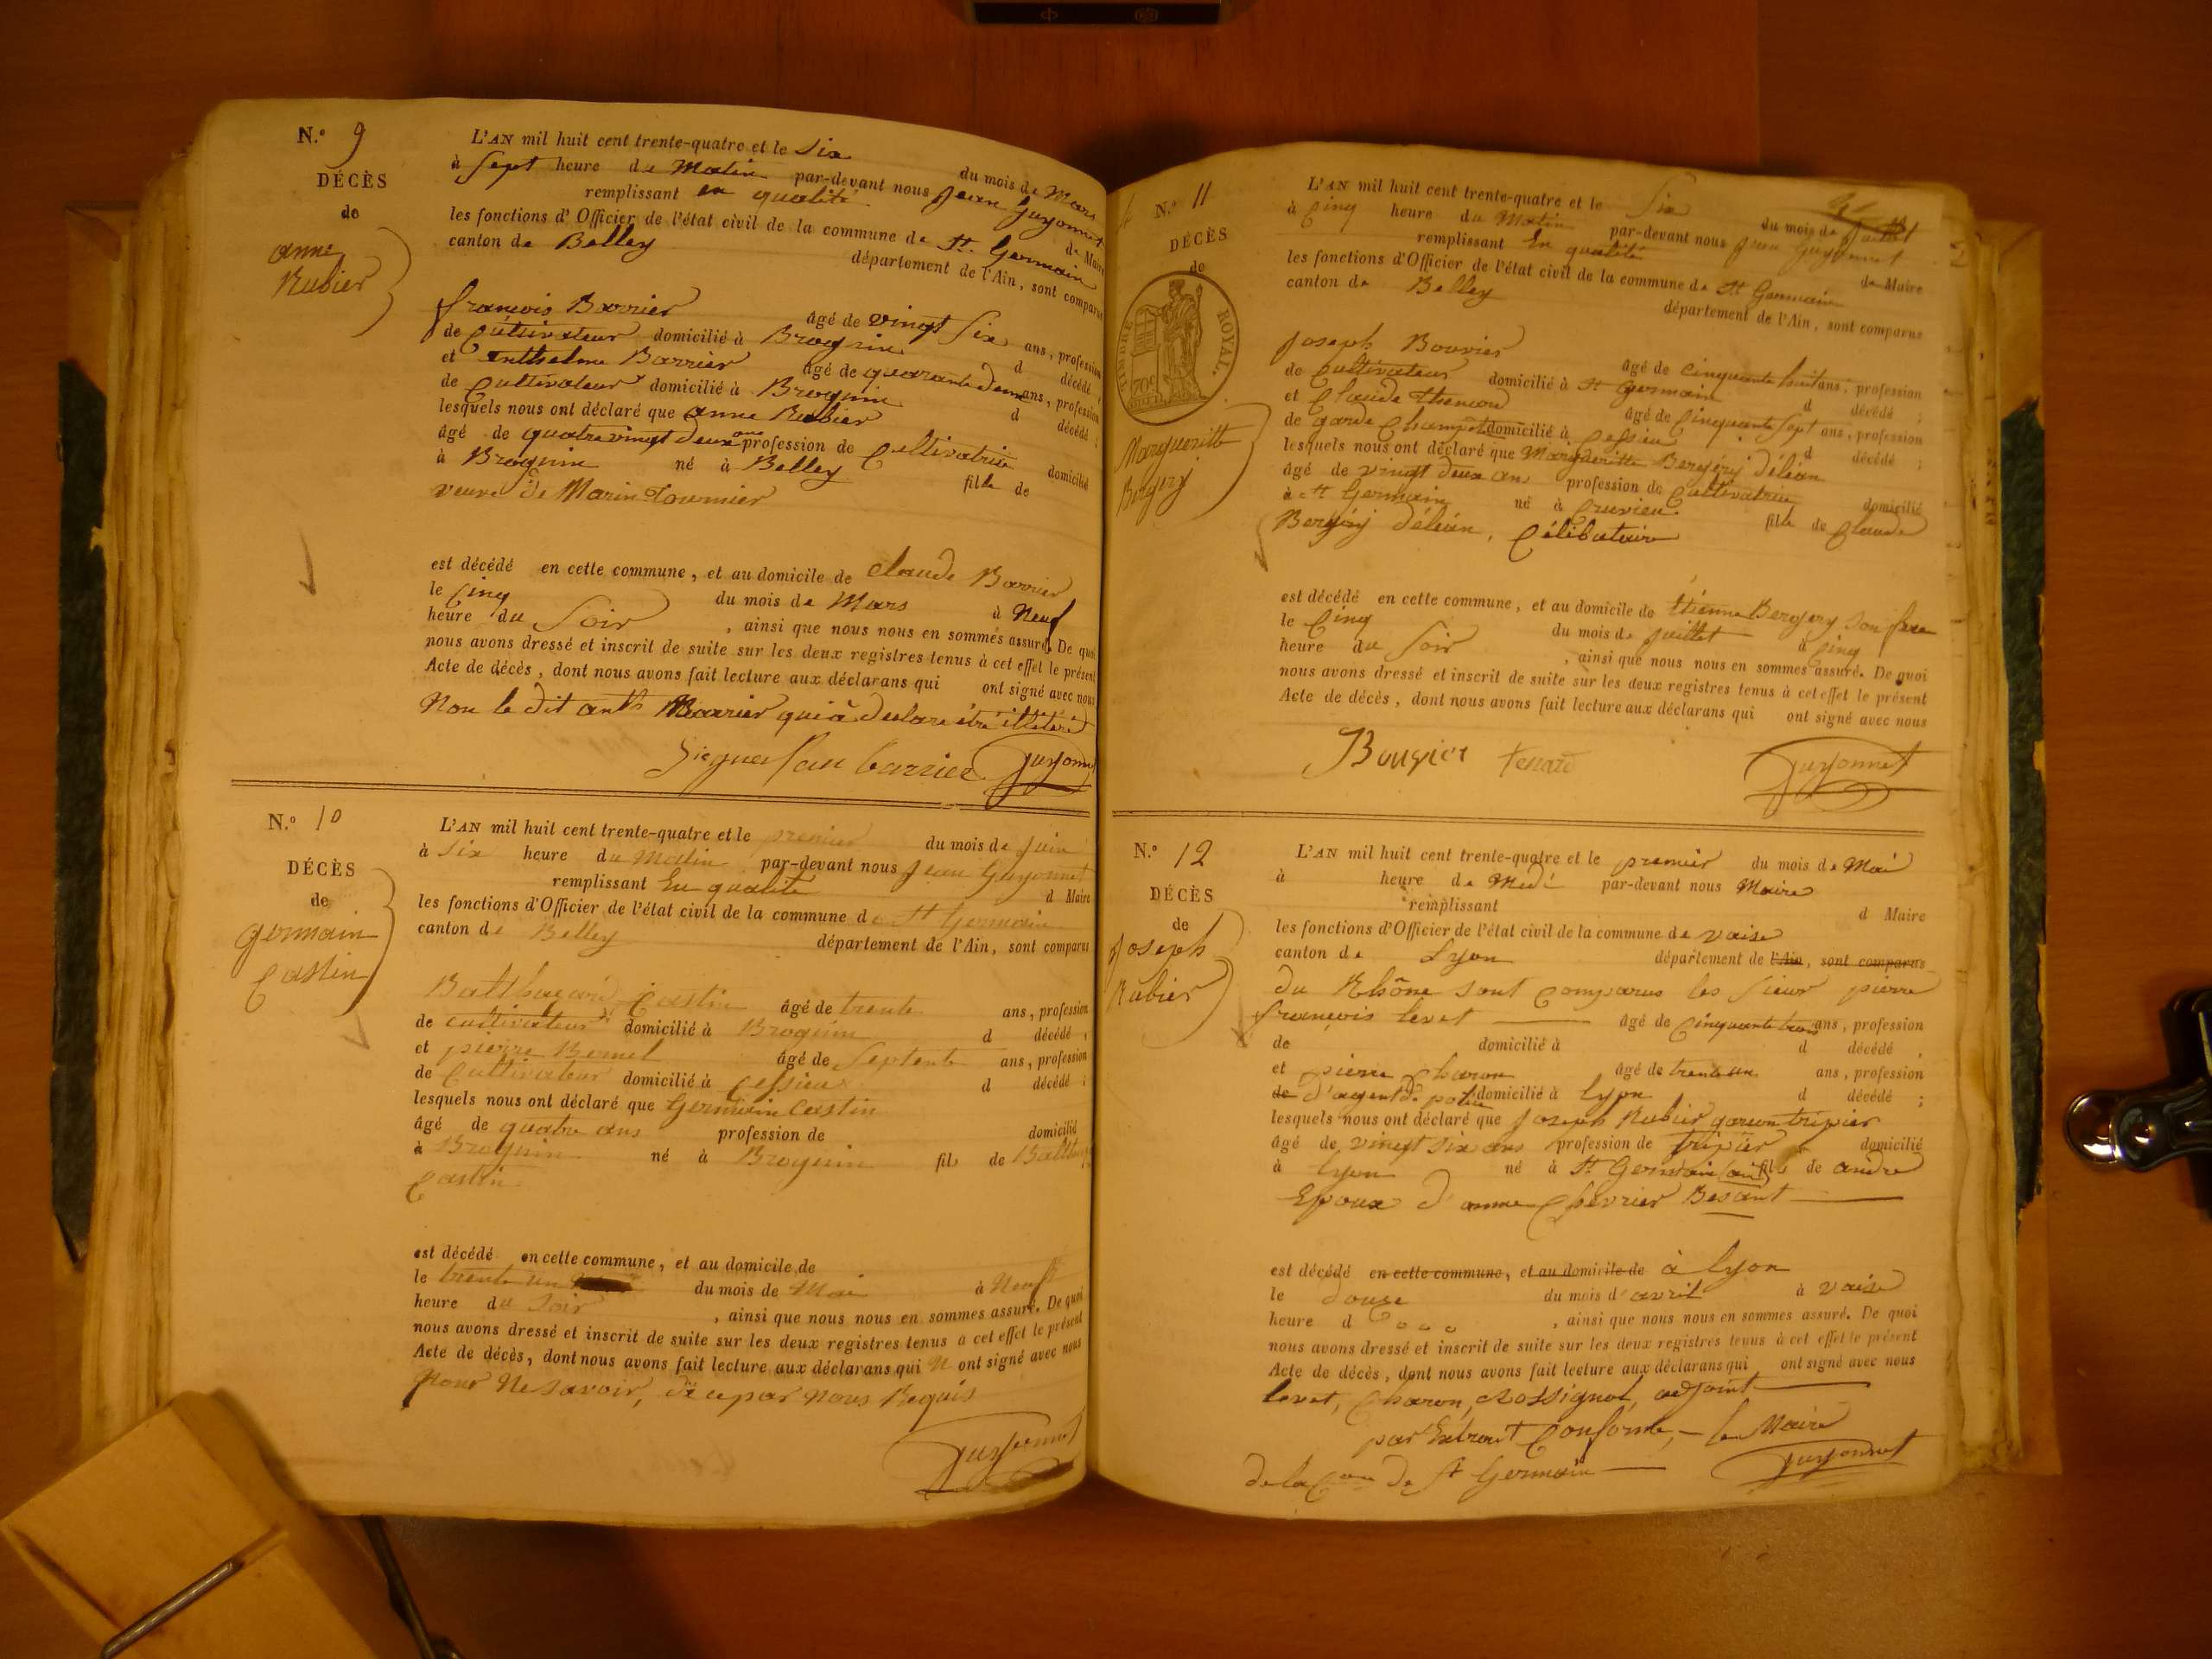 N.º 9
DÉCÈS
de
anne
Rubier
L'AN mil huit cent trente-quatre et le Six du mois de Mars
à Sept heure du Matin par-devant nous Jean Guyonnet
remplissant en qualité de Maire
les fonctions d'Officier de l'état civil de la commune de St. Germain
canton de Belley département de l'Ain, sont comparus
francois Barrier âgé de vingt Six ans, profession
de Cultivateur domicilié à Brognin d décédé ;
et Anthelme Barrier âgé de quarante deux ans, profession
de Cultivateur domicilié à Brognin d décédé ;
lesquels nous ont déclaré que anne Rubier
âgé de quatre vingt deux ans profession de Cultivatrice domicilié
à Brognin né à Belley fille de
veuve de Marin Tournier
est décédé en cette commune, et au domicile de Claude Barrier
le Cinq du mois de Mars à Neuf
heure du Soir, ainsi que nous nous en sommes assuré. De quoi
nous avons dressé et inscrit de suite sur les deux registres tenus à cet effet le présent
Acte de décès, dont nous avons fait lecture aux déclarans qui ont signé avec nous
Non le dit anth Barrier qui à declare être illétéré
barrier Guyonnet
N.º 10
DÉCÈS
de
germain
Castin
L'AN mil huit cent trente-quatre et le premier du mois de Juin
à Six heure du Matin par-devant nous Jean Guyonnet
remplissant En qualité d Maire
les fonctions d'Officier de l'état civil de la commune de St Germain
canton de Belley département de l'Ain, sont comparus
Castin âgé de trente ans, profession
de cultivateur domicilié à Brognin d décédé,
et pierre âgé de Septente ans, profession
de Cultivateur domicilié à Cessieu d décédé ;
lesquels nous ont déclaré que Germain Castin
âgé de quatre ans profession de domicilié
à Brognin né à Brognin fils de
Castin
est décédé en cette commune, et au domicile de
le trente un du mois de Mai à Neuf
heure du Soir, ainsi que nous nous en sommes assuré. De quoi
nous avons dressé et inscrit de suite sur les deux registres tenus à cet effet le présent
Acte de décès, dont nous avons fait lecture aux déclarans qui N ont signé avec nous
pour Ne savoir, de ce par Nous Requis
Guyonnet
N.º 11
DÉCÈS
de
TIMBRE ROYAL.
Margueritte
Bergery
L'AN mil huit cent trente-quatre et le Six du mois de Juillet
à Cinq heure du Matin par-devant nous Jean Guyonnet
remplissant En qualité de Maire
les fonctions d'Officier de l'état civil de la commune de St Germain
canton de Belley département de l'Ain, sont comparus
Joseph Bouvier âgé de Cinquante huit ans, profession
de Cultivateur domicilié à St germain d décédé ;
et Claude Thenard âgé de Cinquante Sept ans, profession
de garde Champêt domicilié à Cessieu d décédé ;
lesquels nous ont déclaré que Margueritte Bergéry
âgé de vingt deux ans profession de Cultivatrice domicilié
à St Germain né à Pruvieu fille de Claude
Bergéry Célibataire
est décédé en cette commune, et au domicile de Étienne Bergery son frere
le Cinq du mois de Juillet à Cinq
heure du Soir, ainsi que nous nous en sommes assuré. De quoi
nous avons dressé et inscrit de suite sur les deux registres tenus à cet effet le présent
Acte de décès, dont nous avons fait lecture aux déclarans qui ont signé avec nous
Bouvier Tenard Guyonnet
N.º 12
DÉCÈS
de
Joseph
Rubier
L'AN mil huit cent trente-quatre et le premier du mois de Mai
à heure de Medi par-devant nous Maire
remplissant d Maire
les fonctions d'Officier de l'état civil de la commune de vaise
canton de Lyon département de l'Ain, sont comparus
du Rhône sont Comparus les Sieur pierre
françois levet âgé de Cinquante trois ans, profession
de domicilié à d décédé,
et pierre Charon âgé de trente un ans, profession
de d'agent de police domicilié à Lyon d décédé ;
lesquels nous ont déclaré que Joseph Rubier garcon tripier
âgé de vingt six ans profession de tripier domicilié
à Lyon né à St Germain (ain) fils de andré
Epoux d'anne Chevrier Besant
est décédé en cette commune, et au domicile de à Lyon
le douze du mois d'avril à vaise
heure d, ainsi que nous nous en sommes assuré. De quoi
nous avons dressé et inscrit de suite sur les deux registres tenus à cet effet le présent
Acte de décès, dont nous avons fait lecture aux déclarans qui ont signé avec nous
levet, Charon, Rossignol, adjoint
par Extrait Conforme, – le Maire
de la Cne de St Germain Guyonnet